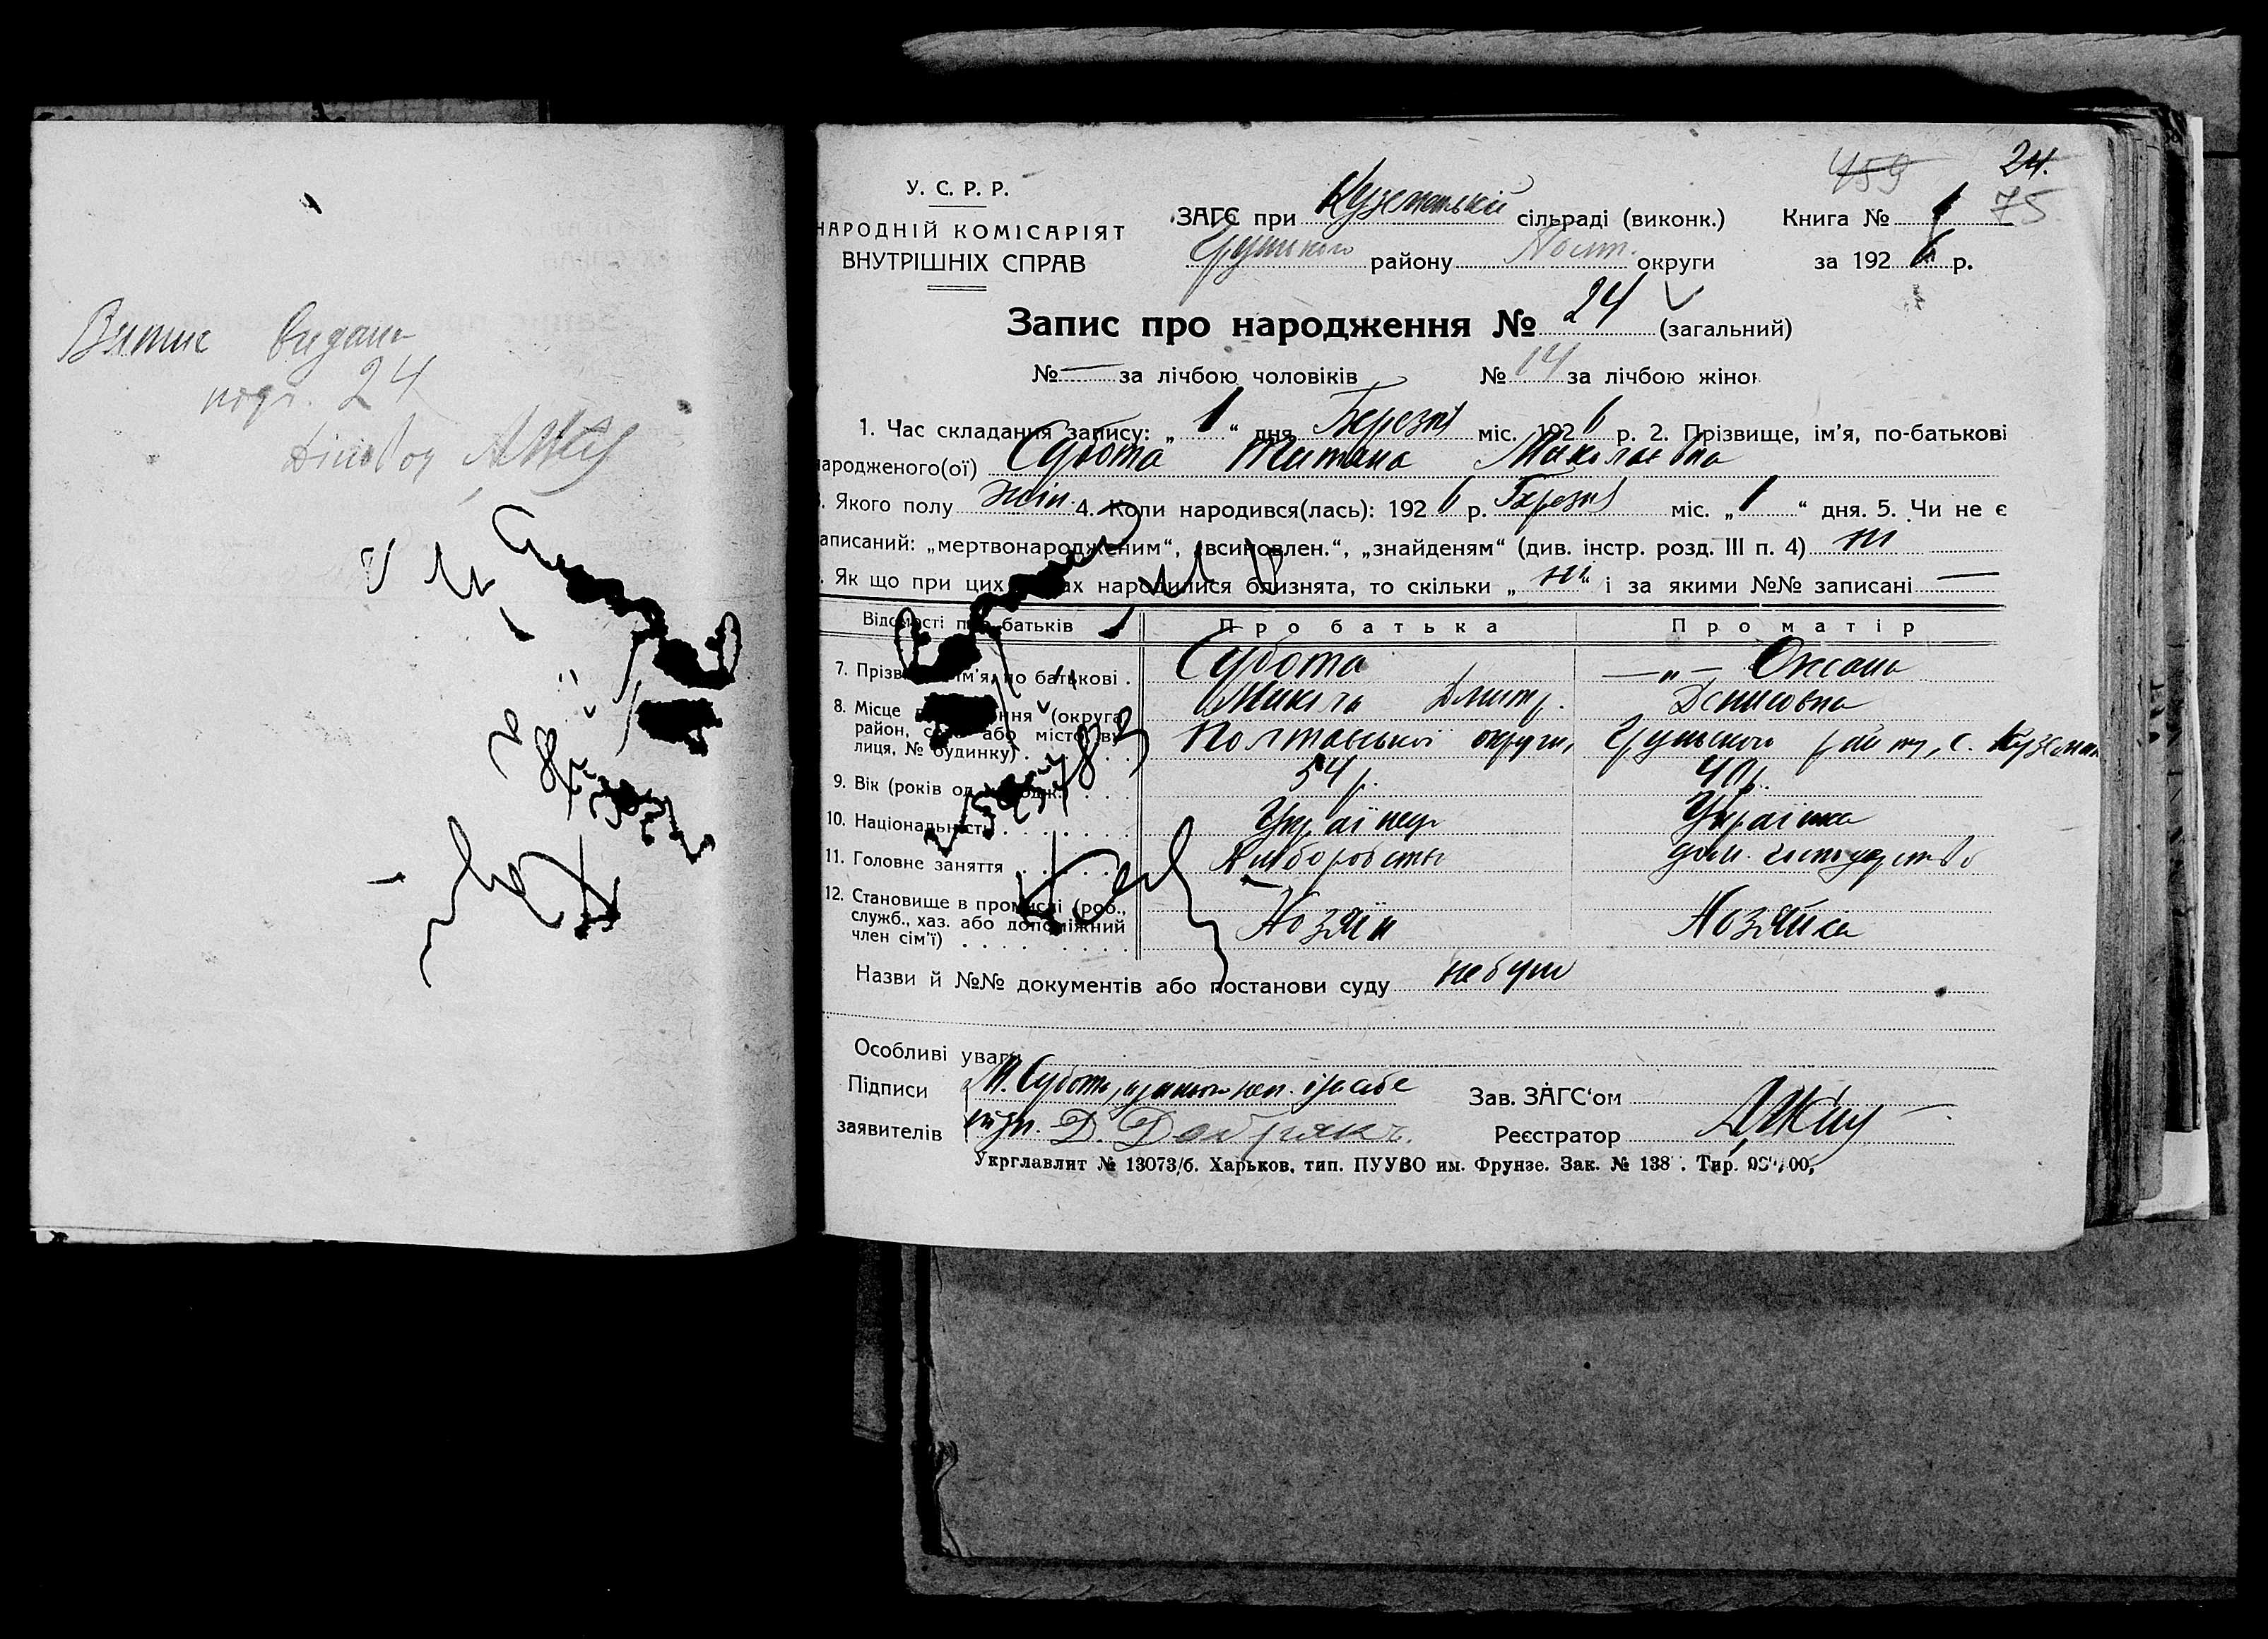 Витяг видано
под. 24
24.
459
75
У. С. Р. Р.
НАРОДНІЙ КОМІСАРІЯТ
ВНУТРІШНІХ СПРАВ
ЗАГС при Куземський сільраді (виконк.)
Грунського району Полт. округи
Книга № 1
за 1926 р.
Запис про народження № 24 (загальний)
№ — за лічбою чоловіків № 14 за лічбою жінок
1. Час складання запису: „ 1 “ дня Березня міс. 1926 р. 2. Прізвище, ім’я, по-батькові
народженого(ої) Субота Титяна Миколаєвна
3. Якого полу жін. 4. Коли народився(лась): 1926 р. Березня міс. „ 1 “ дня. 5. Чи не є
записаний: „мертвонародженим“, „всиновлен.“, „знайденям“ (див. інстр. розд. III п. 4) ні
. Як що при цих ах народилися близнята, то скільки „ ні “ і за якими №№ записані —
Відомості про батьків Про батька Про матір
7. Прізв ім’я, по батькові . Субота —„— Оксана
Микола Дмитр. Денисовна
8. Місце ння (округа
район, або місто, ву-
лиця, № будинку) . Полтавської округи, Грунського району, с. Куземин
9. Вік (років од . 54 р. 40 р.
10. Національність . Українец Українка
11. Головне заняття . Хліборобство дом. господарство
12. Становище в промислі (роб.,
служб., хаз. або допоміжний
член сім’ї) . Хозяїн Хозяйка
Назви й №№ документів або постанови суду небуло
Особливі уваги
Підписи М. Субота,
заявителів Д.
Зав. ЗАГС‘ом
Реєстратор
Укрглавлит № 13073/б. Харьков, тип. ПУУВО им. Фрунзе. Зак. № 138 . Тир.